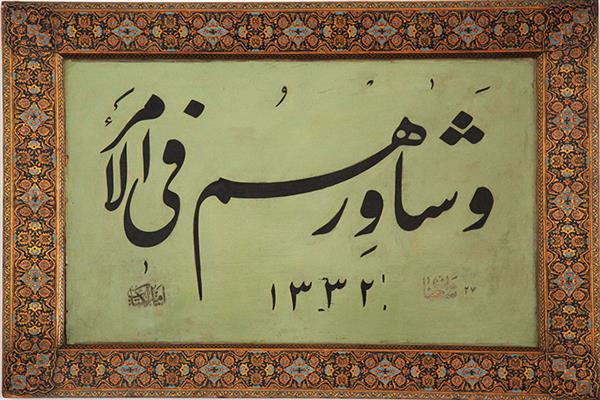 وَشاوِرهُم فی الأَمر
١٣٣٢
امیرالکتاب
٢٧